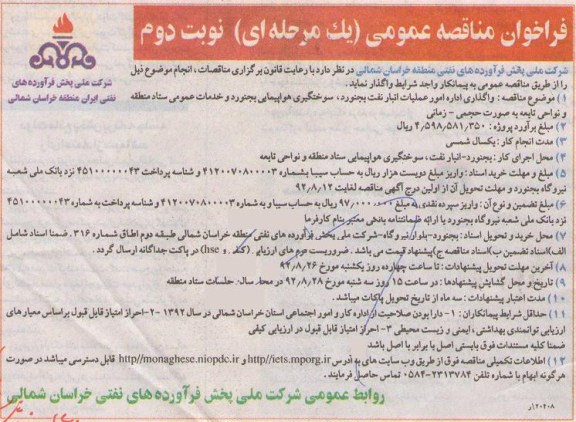 فراخوان مناقصه عمومی (یك مرحله ای) نوبت دوم
شرکت ملی پخش فرآورده های
نفتی ایران منطقه خراسان شمالی
شرکت ملی پخش فرآورده های نفتی منطقه خراسان شمالی در نظر دارد با رعایت قانون برگزاری مناقصات ، انجام موضوع ذیل
را از طریق مناقصه عمومی به پیمانکار واجد شرایط واگذار نماید.
۱) موضوع مناقصه : واگذاری اداره امور عملیات انبار نفت بجنورد، سوختگیری هواپیمایی بجنورد و خدمات عمومی ستاد منطقه
و نواحی تابعه به صورت حجمی - زمانی
۲) مبلغ برآورد پروژه : ۴,۵۹۸,۵۸۱,۳۵۰ ریال
۳) مدت انجام کار: یکسال شمسی
۴) محل اجرای کار: بجنورد-انبار نفت ، سوختگیری هواپیمایی ستاد منطقه و نواحی تابعه
۵) مبلغ و مهلت خرید اسناد: واریز مبلغ دویست هزار ریال به حساب سیبا بشماره ۴۱۲۰۰۷۰۸۰۰۰۰۳ و شناسه پرداخت ۴۵۱۰۰۰۰۰۰۴۳ نزد بانک ملی شعبه
نیروگاه بجنورد و مهلت تحویل آن از اولین درج آگهی مناقصه لغایت ۹۲/۸/۱۲
۶) مبلغ تضمین و نوع آن: واریز سپرده نقدی به مبلغ ۹۷,۰۰۰,۰۰۰ ریال به حساب سیبا و به شماره ۴۱۲۰۰۷۰۸۰۰۰۰۳ و شناسه پرداخت ۴۵۱۰۰۰۰۰۰۴۳
نزد بانک ملی شعبه نیروگاه بجنورد یا ارائه ضمانتنامه بانکی معتبر بنام کارفرما
۷) محل خرید و تحویل اسناد: بجنورد-بلوار نیروگاه-شرکت ملی پخش فرآورده های نفتی منطقه خراسان شمالی طبقه دوم اطاق شماره ۳۱۶. ضمنا اسناد شامل
الف)اسناد تضمین ب)اسناد مناقصه ج)پیشنهاد قیمت می باشد . ضروریست فرم های ارزیابی (کیفی و hse) در پاکت جداگانه ارسال گردد .
۸) آخرین مهلت تحویل پیشنهادات : تا ساعت چهارده روز یکشنبه مورخ ۹۲/۸/۲۶
۹) تاریخ و محل گشایش پیشنهادها : در ساعت ۱۵ روز سه شنبه مورخ ۹۲/۸/۲۸ در محل سالن جلسات ستاد منطقه
۱۰) مدت اعتبار پیشنهادات : سه ماه از تاریخ تحویل پاکات میباشد .
۱۱) حداقل شرایط پیمانکاران : ۱- دارا بودن صلاحیت از اداره کار و امور اجتماعی استان خراسان شمالی در سال ۱۳۹۲ ۲-احراز امتیاز قابل قبول براساس معیارهای
ارزیابی توانمندی بهداشتی، ایمنی و زیست محیطی ۳- احراز امتیاز قابل قبول در ارزیابی کیفی
ضمنا کلیه مستندات فوق بایستی اصل یا برابر با اصل باشد
۱۲) اطلاعات تکمیلی مناقصه فوق از طریق وب سایت های به آدرس http//iets.mporg.ir و http//monaghese.niopdc.ir قابل دسترسی میباشد در صورت
هرگونه ابهام با شماره تلفن ۲۳۱۳۷۸۴-۰۵۸۴ تماس حاصل فرمایند .
روابط عمومی شرکت ملی پخش فرآورده های نفتی خراسان شمالی
۱۲۰۴۰۸/ر